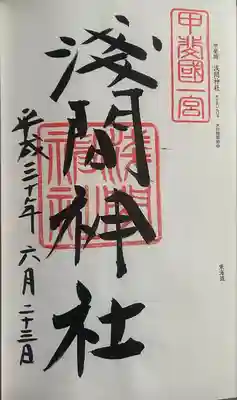 甲斐國一宮
甲斐國 浅間神社
東海道
淺間神社
淺間神社
平成三十年 六月 二十三日